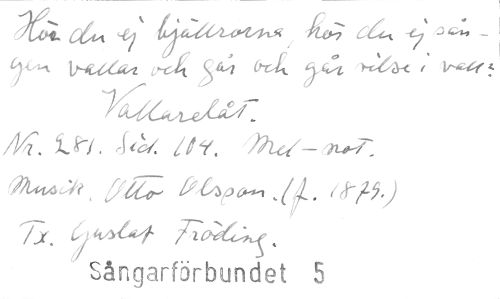 Hör du ej bjällrorna, hör du ej sån-
gen vallar och går och går vilse i vall:
Vallarelåt.
Nr. 281. Sid. 104. Mel-not.
Musik. Otto Olsson. (f. 1879.)
Tx. Gustaf Fröding.
Sångarförbundet 5